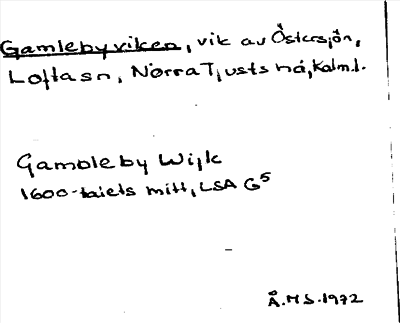 Gamlebyviken, vik av Östersjön,
Lofta sn, Norra Tjusts hd, Kalm.l.
Gambleby Wijk
1600-talets mitt, LSA G5
Å.M S. 1972